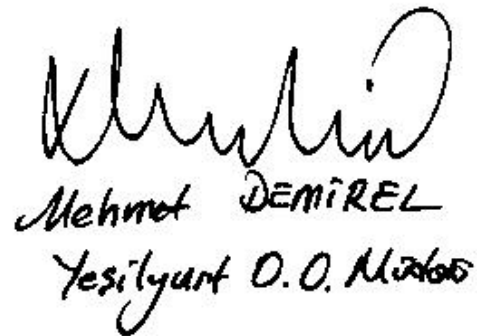 Mehmet DEMİREL
Yesilyurt O.O. Müdürü